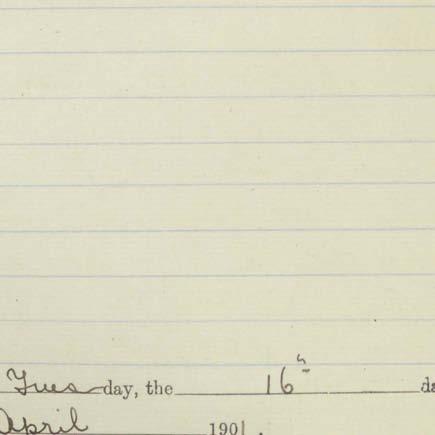 Tuesday, the 16th da
April 1901.